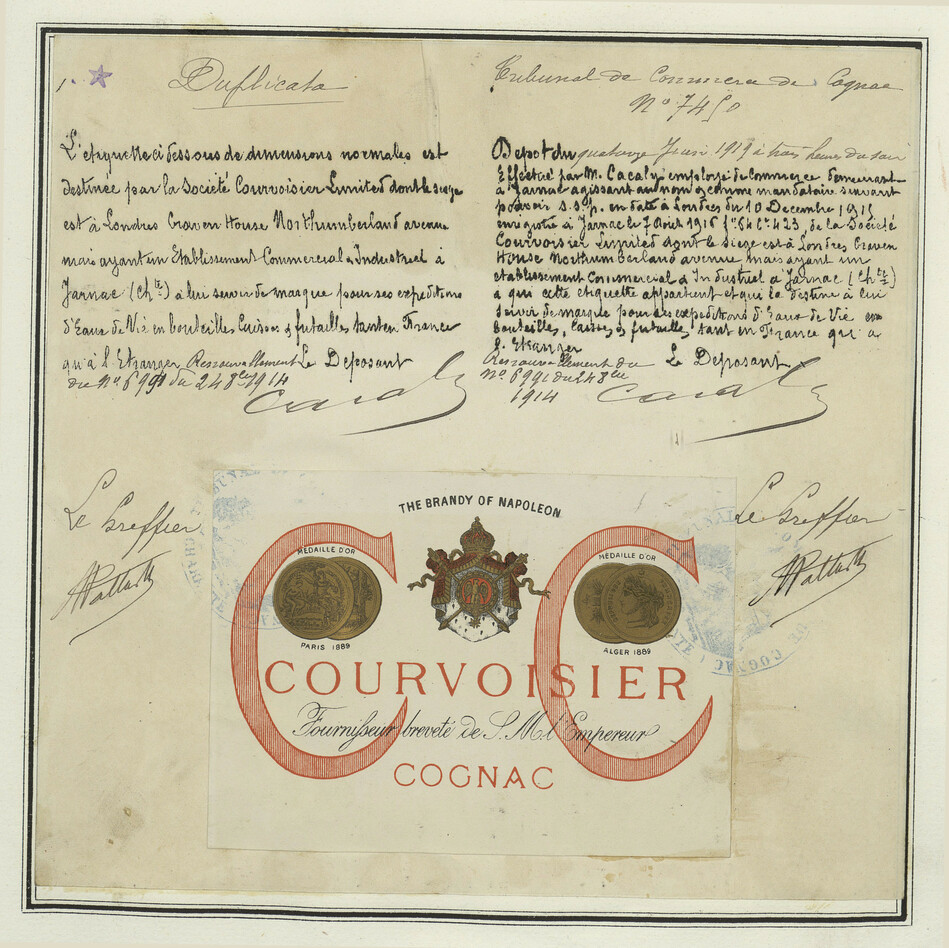 1.
Duplicata
L'etiquette ci dessous de dimensions normales est
destinée par la Société Courvoisier Limited dont le siège
est à Londres Craven House Northumberland avenue
mais ayant un Etablissement Commercial & Industriel à
Jarnac (Chte) à lui servir de marque pour ses expeditions
d'Eaux de Vie en bouteilles, Caisses & futailles tant en France
qu'à l'Etranger Renouvellement Le Deposant
du No 6991 du 24 8bre 1914
Tribunal de Commerce de Cognac
No 7450
Depot du quatorze Juin 1919 à trois heures du soir
Effectué par M. Cacaly employé de Commerce demeurant
à Jarnac agissant au nom & comme mandataire suivant
pouvoir s.s.p. en date à Londres du 10 Decembre 1915
enregistré à Jarnac le 7 Aout 1916 fo 64 Co 423, de la Société
Courvoisier Limited dont le Siege est à Londres Craven
House Northumberland avenue mais ayant un
etablissement Commercial & Industriel à Jarnac (Chte)
a qui cette etiquette appartient et qui la destine à lui
servir de marque pour les expeditions d'Eaux de Vie en
bouteilles, Caisses, & futailles, tant en France qu'a
l'Etranger
Renouvellement du Le Deposant
No 6991 du 24 8bre
1914
Le Greffier
Le Greffier
THE BRANDY OF NAPOLEON
MÉDAILLE D'OR
MÉDAILLE D'OR
PARIS 1889
ALGER 1889
COURVOISIER
Fournisseur breveté de S. M. l'Empereur
COGNAC